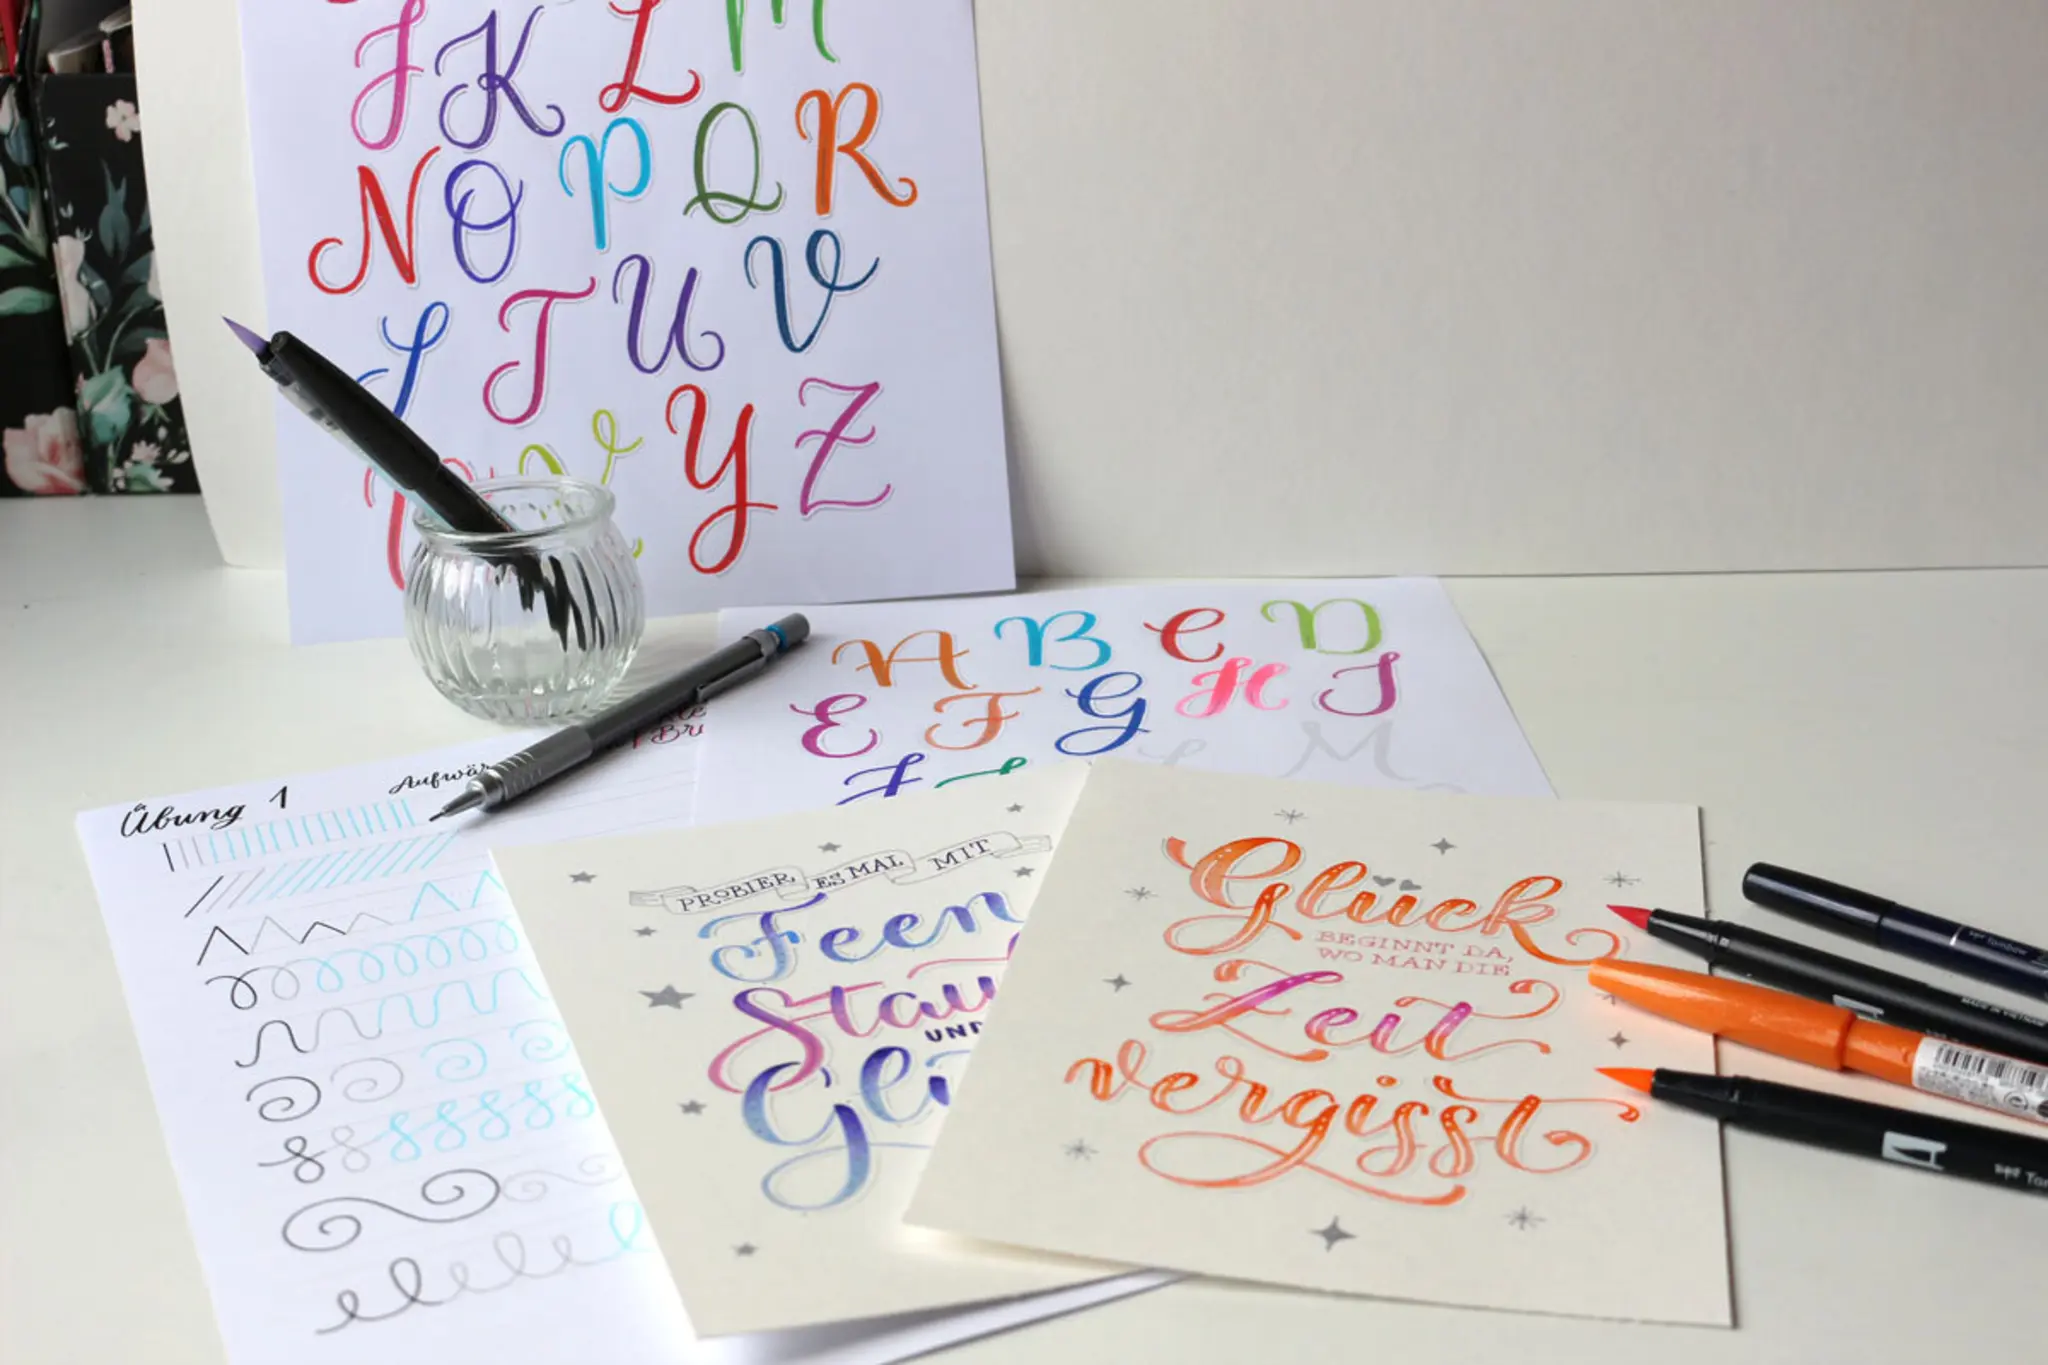 J K L M
N O P Q R
S T U V
Y Z
A B C D
E F G H I
M
Übung 1
PROBIER ES MAL MIT
Feen
UND
Glück
BEGINNT DA,
WO MAN DIE
Zeit
vergisst